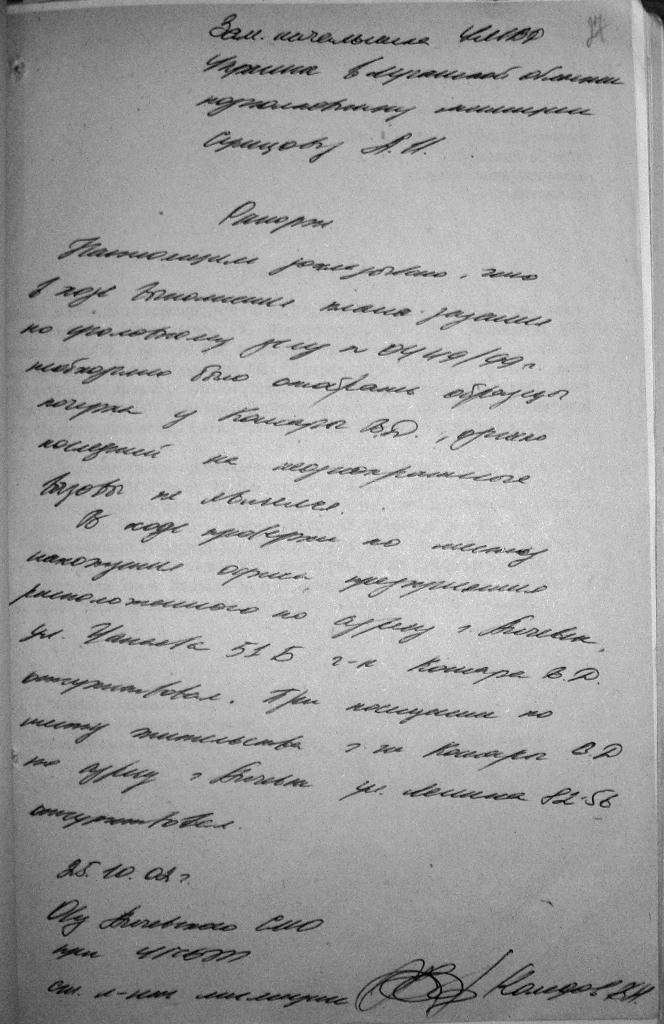 27
Зам. начальника УМВД
Украины в Луганской области
подполковнику милиции
А.И.
Рапорт
Настоящим докладываю, что
в ходе выполнения плана-задания
по уголовному делу №
необходимо было отобрать образцы
почерка у Комары В.Д., однако
последний на неоднократные
вызовы не являлся.
В ходе проверки по месту
нахождения офиса предприятия
расположенного по адресу г. Алчевск,
ул. Чапаева 51 Б г-н Комара В.Д.
отсутствовал. При посещении по
месту жительства г-на Комары В.Д
по адресу г. Алчевск ул. Ленина 82-56
отсутствовал.
25.10.02 г.
О/у Алчевского
при
ст. л-нт милиции